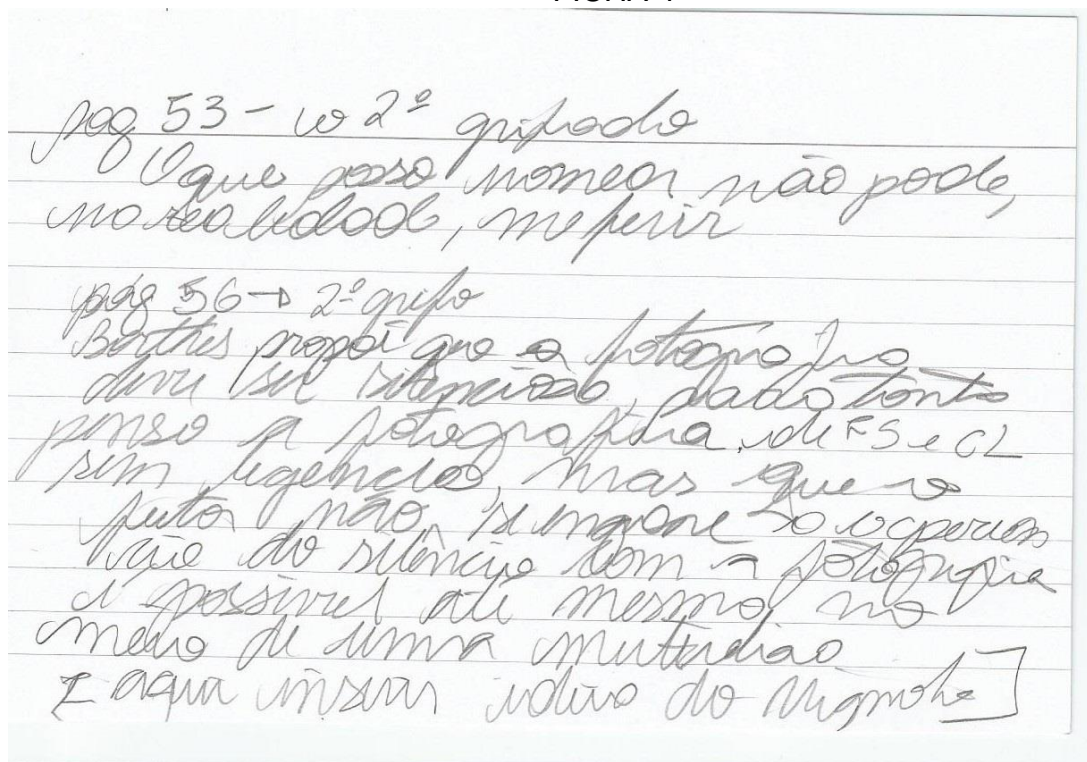 pag 53 - o 2º grifado
O que posso nomear não pode,
na realidade, me ferir
pág 56 → 2º grifo
Barthes propõe que a fotografia
deve ser silenciosa, para tanto
penso a fotografia de FS e CL
sem legenda, mas que o
leitor não se engane
do silêncio com a fotografia
é possível até mesmo no
meio de uma multidão
[aqui inserir ideia do]